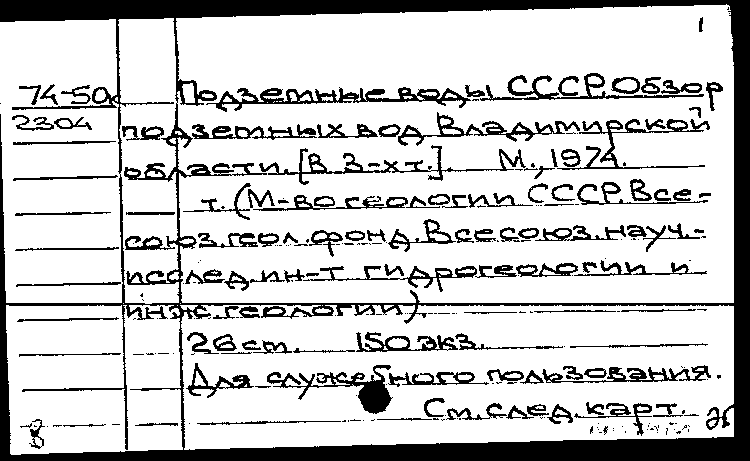 1
74-50с Подземные воды СССР. Обзор
2304 подземных вод Владимирской
области. [В 3-х т.]. М., 1974.
т. (М-во геологии СССР. Все-
союз. геол. фонд. Всесоюз. науч.-
исслед. ин-т гидрогеологии и
инж. геологии).
26 см. 150 экз.
Для служебного пользования.
См. след. карт.
8